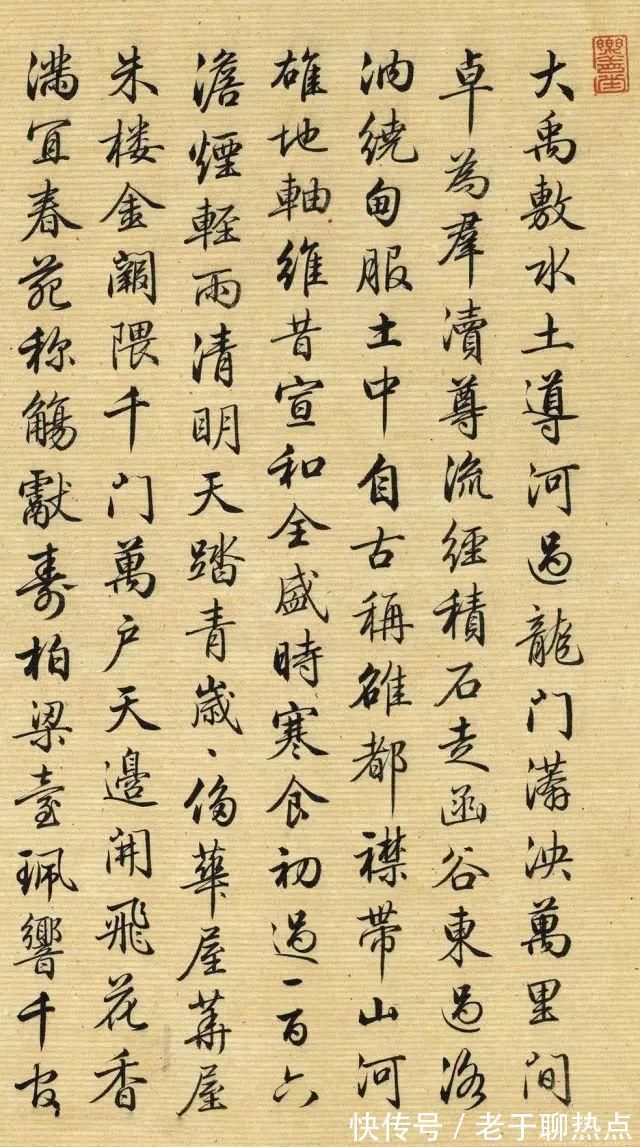 樂善堂
大禹敷水土導河過龍门漭泱萬里间
卓為羣瀆尊流經積石走函谷東過洛
汭繞甸服土中自古稱雒都襟帶山河
雄地軸維昔宣和全盛時寒食初過一百六
澹煙輕雨清明天踏青歲々侈華屋華屋
朱楼金闕隈千门萬户天邊開飛花香
滿宜春苑称觴獻壽柏梁臺珮響千官
快传号 / 老于聊热点